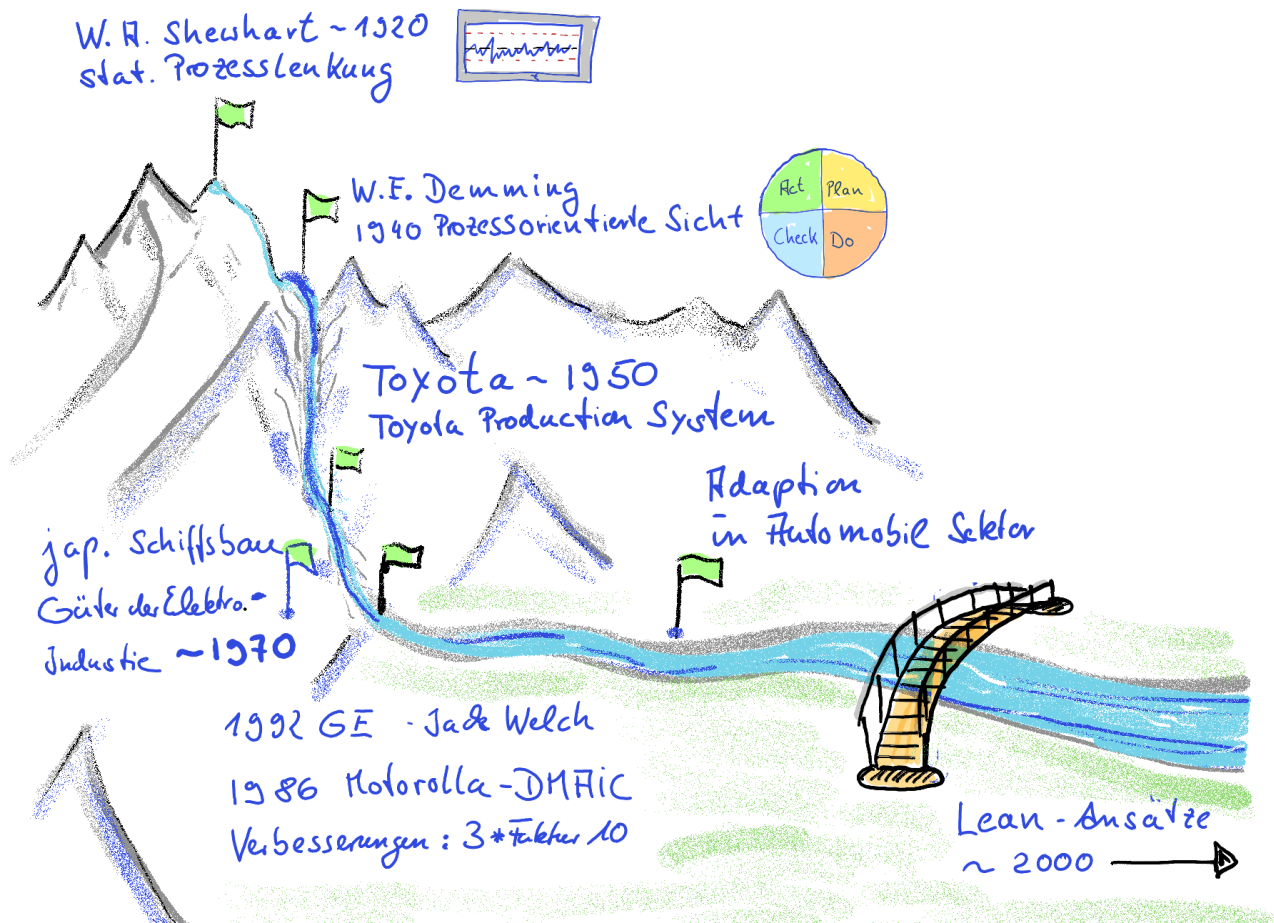 W. A. Shewhart ~1920
stat. Prozesslenkung
W.E. Demming
1940 Prozessorientierte Sicht
Act
Plan
Check
Do
Toyota ~ 1950
Toyota Production System
Adaption
in Automobil Sektor
jap. Schiffsbau
Güter der Elektro.-
Industie ~1970
1992 GE - Jack Welch
1986 Motorolla-DMAiC
Verbesserungen: 3 * Faktor 10
Lean - Ansätze
~ 2000